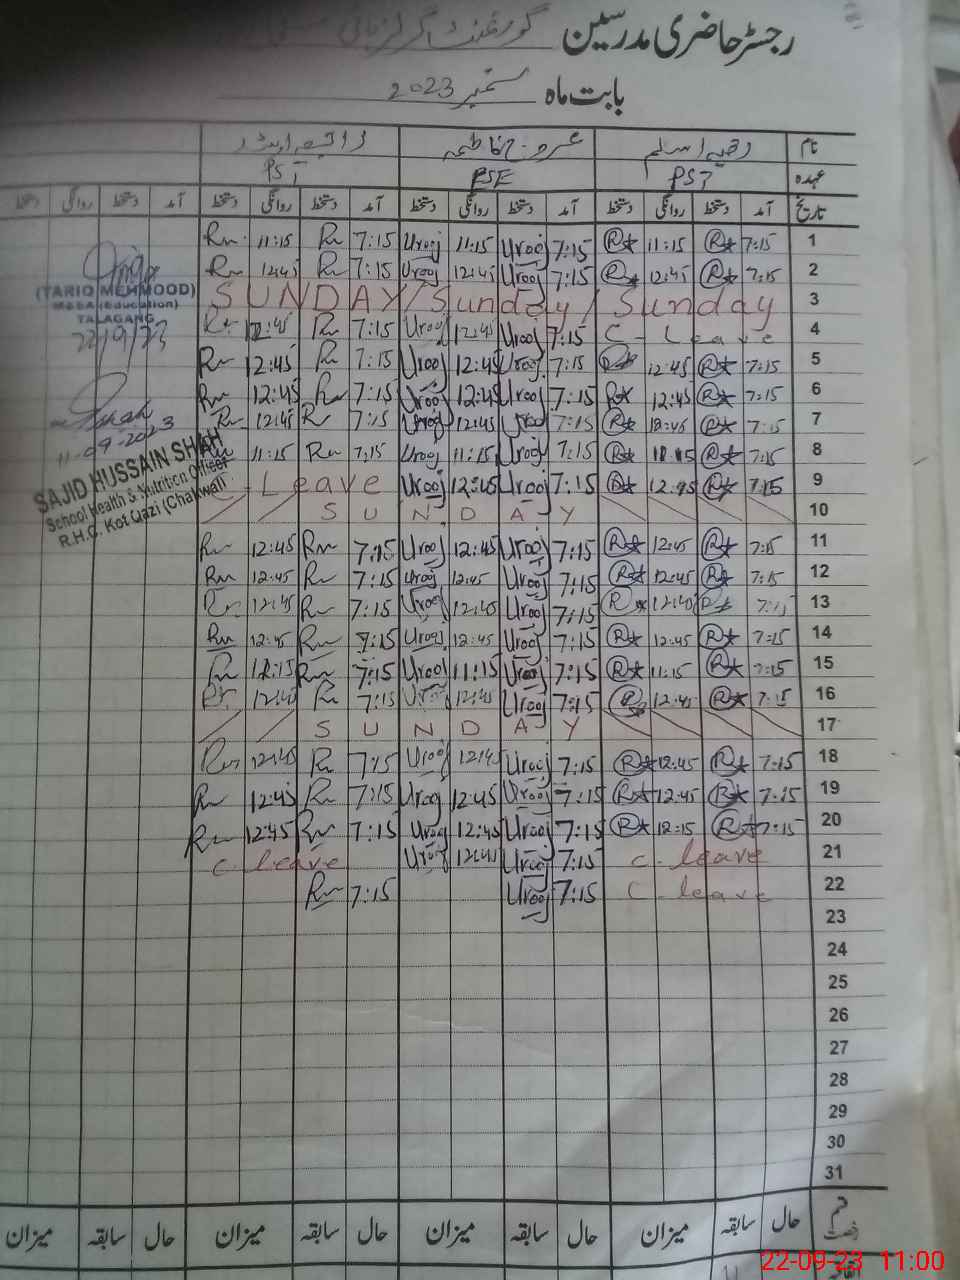 رجسٹر حاضری مدرسین گورنمنٹ گرلز
بابت ماہ ستمبر 2023
نام رقیہ اسلم عروج فاطمہ
عہدہ PST PSE PST
تاریخ آمد دستخط روانگی دستخط آمد دستخط روانگی دستخط آمد دستخط روانگی دستخط آمد دستخط روانگی دستخط
1 7:15 R 11:15 R 7:15 Urooj 11:15 Urooj 7:15 Rn 11:15 Rn
2 7:15 R 12:45 R 7:15 Urooj 12:45 Urooj 7:15 Rn 12:45 Rn
3 SUNDAY/Sunday/Sunday
4 C- Leave 7:15 Urooj 12:45 Urooj 7:15 Rn 12:45 Rn
5 7:15 R 12:45 R 7:15 Urooj 12:45 Urooj 7:15 Rn 12:45 Rn
6 7:15 R 12:45 R 7:15 Urooj 12:45 Urooj 7:15 Rn 12:45 Rn
7 7:15 R 12:45 R 7:15 Urooj 12:45 Urooj 7:15 R 12:45 Rn
8 7:15 R 11:15 R 7:15 Urooj 11:15 Urooj 7:15 Rn 11:15 Rn
9 7:15 R 12:45 R 7:15 Urooj 12:45 Urooj C-Leave
10 SUNDAY
11 7:15 R 12:45 R 7:15 Urooj 12:45 Urooj 7:15 Rn 12:45 Rn
12 7:15 R 12:45 R 7:15 Urooj 12:45 Urooj 7:15 Rn 12:45 Rn
13 7:15 R 12:45 R 7:15 Urooj 12:45 Urooj 7:15 Rn 12:45 Rn
14 7:15 R 12:45 R 7:15 Urooj 12:45 Urooj 7:15 Rn 12:45 Rn
15 7:15 R 11:15 R 7:15 Urooj 11:15 Urooj 7:15 Rn Rn
16 7:15 R 12:45 R 7:15 Urooj 12:45 Urooj 7:15 Rn 12:45 Rn
17 SUNDAY
18 7:15 R 12:45 R 7:15 Urooj 12:45 Urooj 7:15 Rn 12:45 Rn
19 7:15 R 12:45 R 7:15 Urooj 12:45 Urooj 7:15 Rn 12:45 Rn
20 7:15 R 12:15 R 7:15 Urooj 12:45 Urooj 7:15 Rn 12:45 Rn
21 c. leave 7:15 Urooj 12:45 Urooj c. leave
22 C- leave 7:15 Urooj 7:15 Rn
23
24
25
26
27
28
29
30
31
(TARIQ MEHMOOD)
TALAGANG
22/9/23
11-09-2023
SAJID HUSSAIN SHAH
School Health & Nutrition Officer
R.H.C. Kot Qazi (Chakwal)
قسم رخصت حال سابقہ میزان حال سابقہ میزان حال سابقہ میزان
اتفاقیہ
22-09-23 11:00